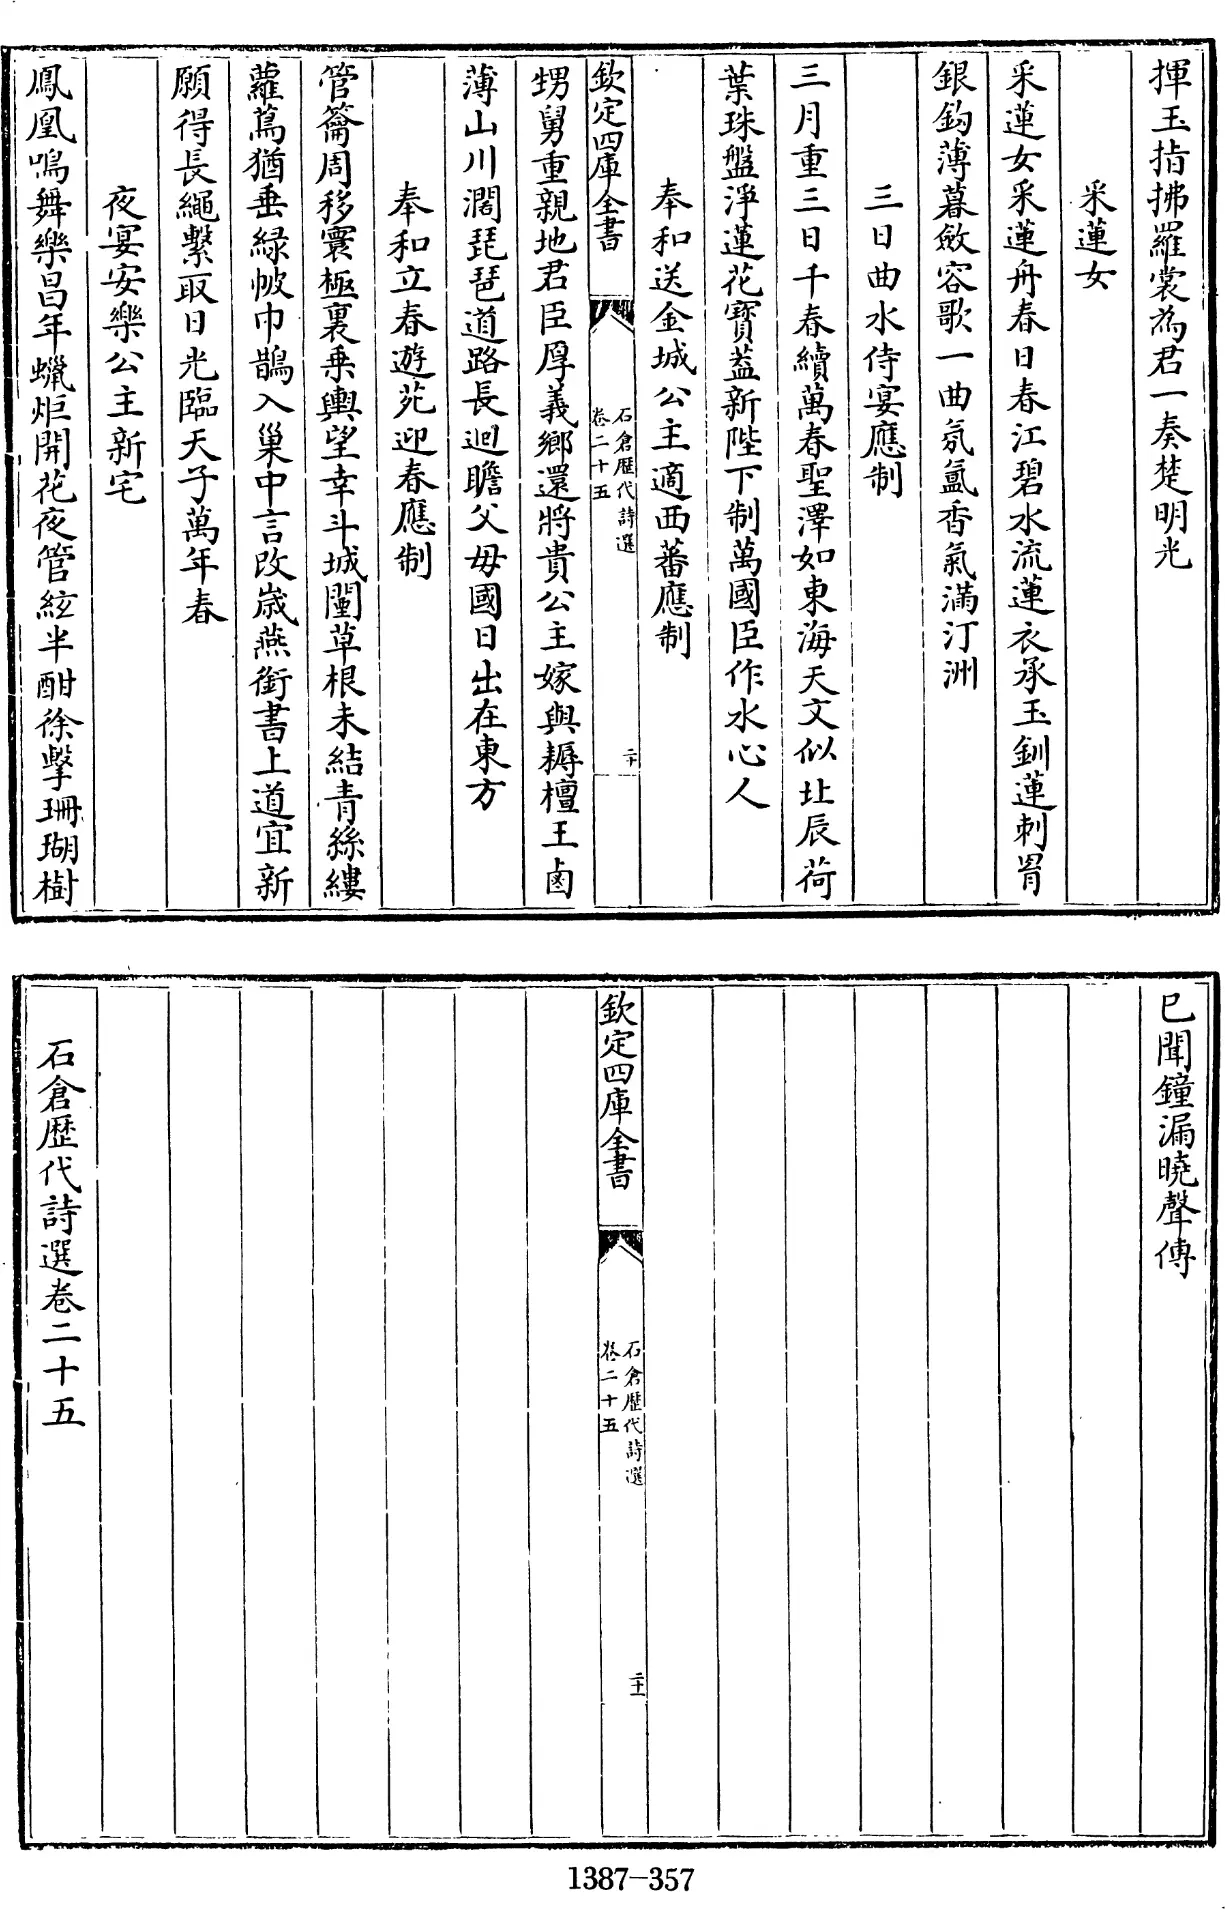 揮玉指拂羅裳為君一奏楚明光
采蓮女
采蓮女采蓮舟春日春江碧水流蓮衣承玉釧蓮刺罥
銀鈎薄暮斂容歌一曲氛氳香氣滿汀洲
三日曲水侍宴應制
三月重三日千春續萬春聖澤如東海天文似北辰荷
葉珠盤淨蓮花寳葢新陛下制萬國臣作水心人
奉和送金城公主適西蕃應制
欽定四庫全書
石倉歴代詩選
卷二十五
二十
甥舅重親地君臣厚義鄉還將貴公主嫁與耨檀王鹵
薄山川濶琵琶道路長迴瞻父母國日出在東方
奉和立春遊苑迎春應制
管籥周移寰極裏乗輿望幸斗城闉草根未結青絲縷
蘿蔦猶垂緑帔巾鵲入巢中言改歳燕銜書上道宜新
願得長繩繫取日光臨天子萬年春
夜宴安樂公主新宅
鳳凰鳴舞樂昌年蠟炬開花夜管絃半酣徐擊珊瑚樹
已聞鐘漏曉聲傳
欽定四庫全書
石倉歴代詩選
卷二十五
二十一
石倉歴代詩選卷二十五
1387-357